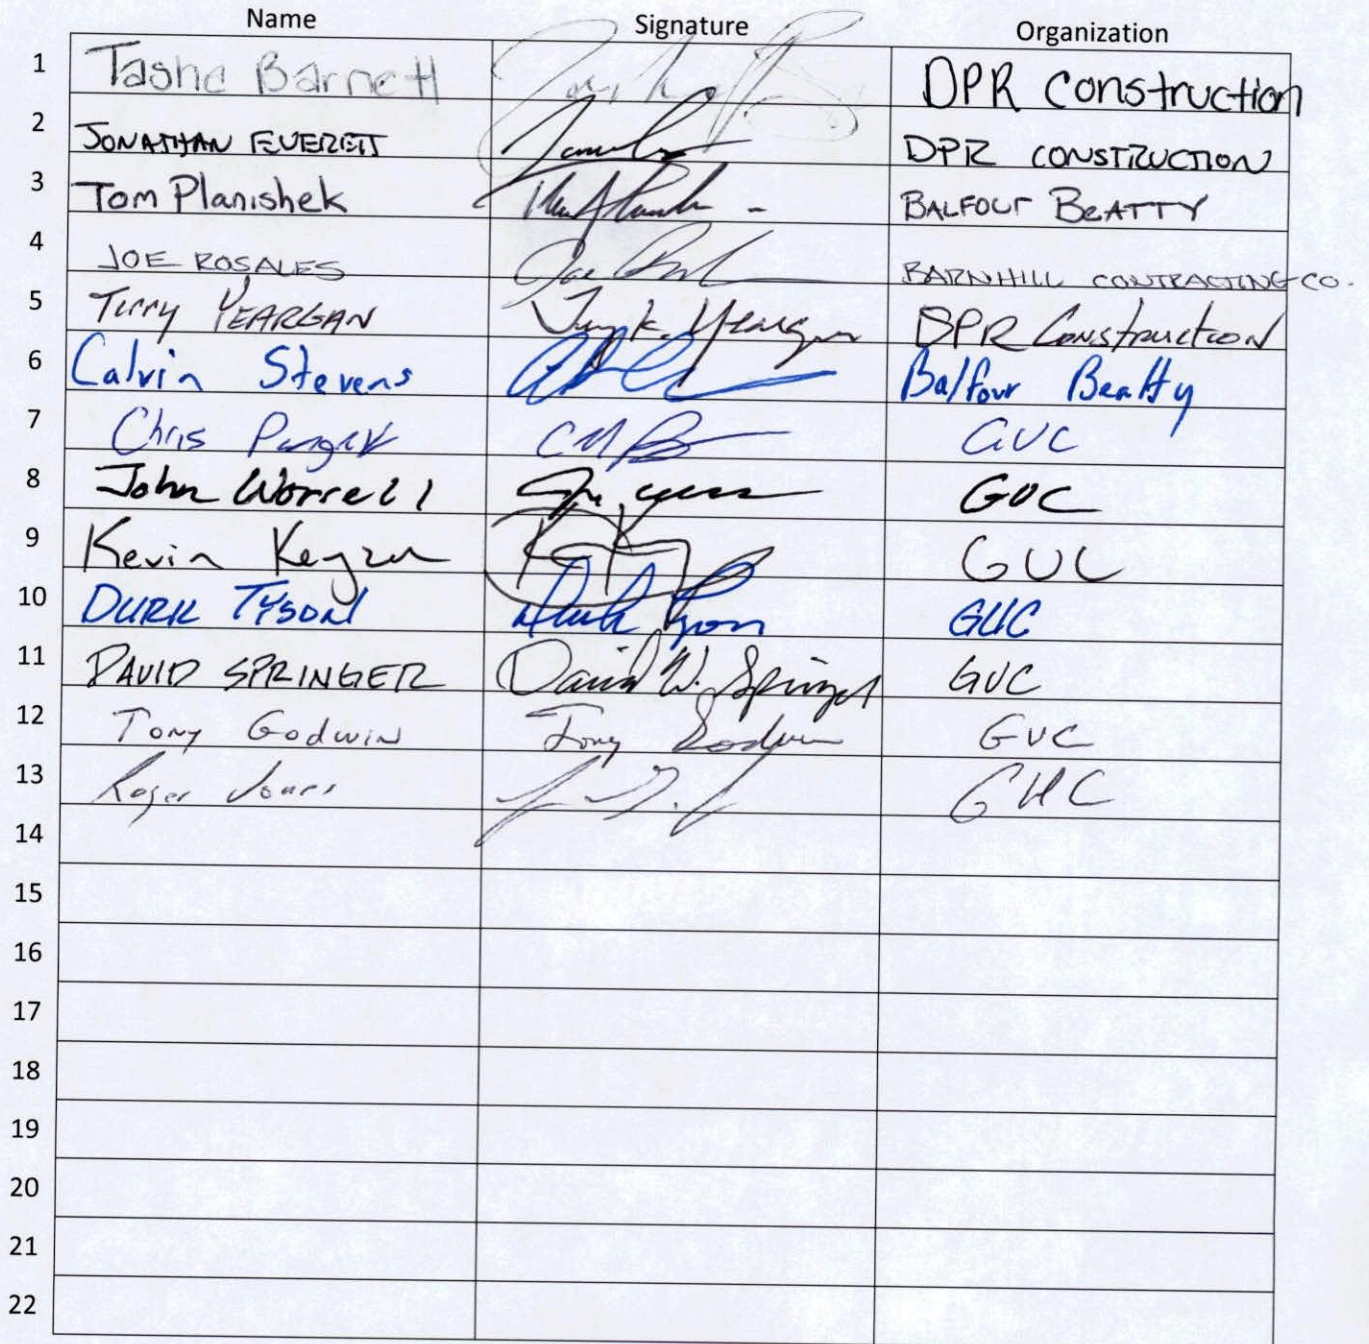 Name Signature Organization
1 Tasha Barnett DPR Construction
2 JONATHAN EVERETT DPR CONSTRUCTION
3 Tom Planishek BALFOUR BEATTY
4 JOE ROSALES BARNHILL CONTRACTING CO.
5 Terry YEARGAN DPR Construction
6 Calvin Stevens Balfour Beatty
7 Chris GUC
8 John Worrell GUC
9 Kevin Keyzer GUC
10 DURK TYSON GUC
11 DAVID SPRINGER David W. Springer GUC
12 Tony Godwin Tony Godwin GUC
13 Roger Jones GUC
14
15
16
17
18
19
20
21
22